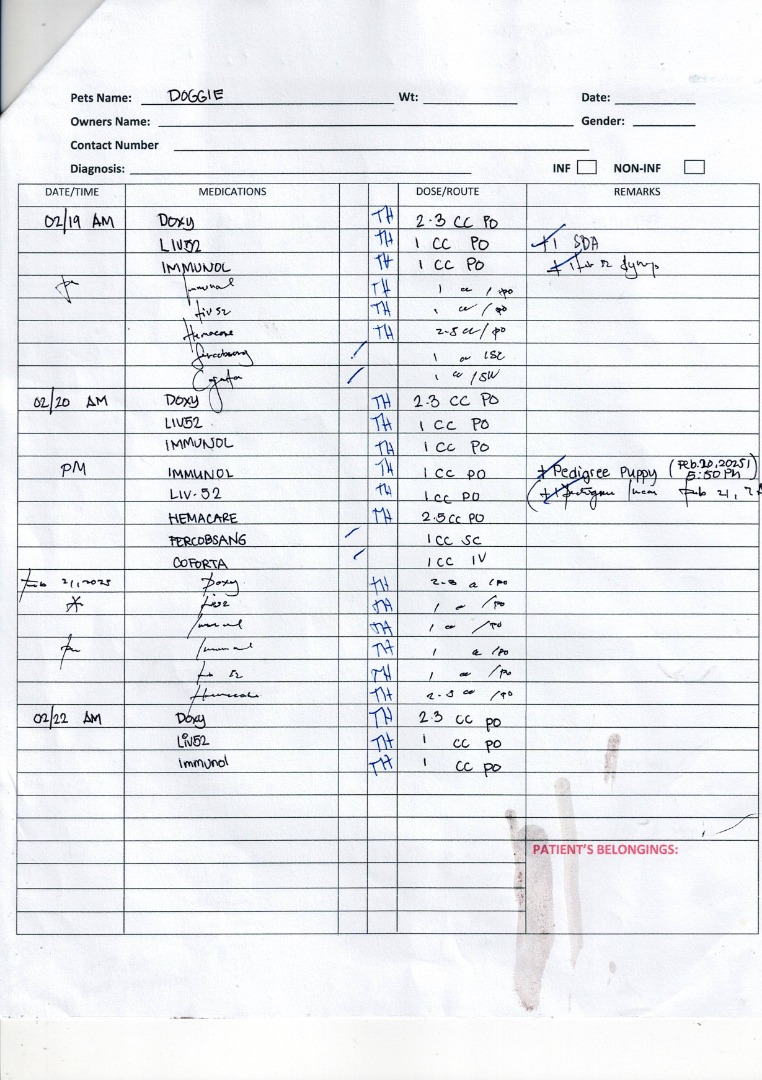 Pets Name: DOGGIE Wt: Date:
Owners Name: Gender:
Contact Number
Diagnosis: INF NON-INF
DATE/TIME MEDICATIONS DOSE/ROUTE REMARKS
02/19 AM Doxy TH 2.3 CC PO
LIV52 TH 1 CC PO 1 SDA
IMMUNOL TH 1 CC PO
Immunol TH 1 cc / po
Liv 52 TH 1 cc / po
Hemacare TH 2.5 cc / po
1 cc
1 cc
02/20 AM Doxy TH 2.3 CC PO
LIV52 TH 1 CC PO
IMMUNOL TH 1 CC PO
PM IMMUNOL TH 1 CC PO Pedigree Puppy (Feb.20,2025) 5:50 PM
LIV-52 TH 1 CC PO Feb 21,
HEMACARE TH 2.5 CC PO
FERCOBSANG 1 CC SC
COFORTA 1 CC IV
Feb 21, 2025 Doxy TH 2.3 cc / po
Liv52 TH 1 cc / po
Immunol TH 1 cc / po
Immunol TH 1 cc / po
Liv 52 TH 1 cc / po
Hemacare TH 2.5 cc / po
02/22 AM Doxy TH 2.3 CC PO
Liv52 TH 1 CC PO
Immunol TH 1 CC PO
PATIENT'S BELONGINGS: